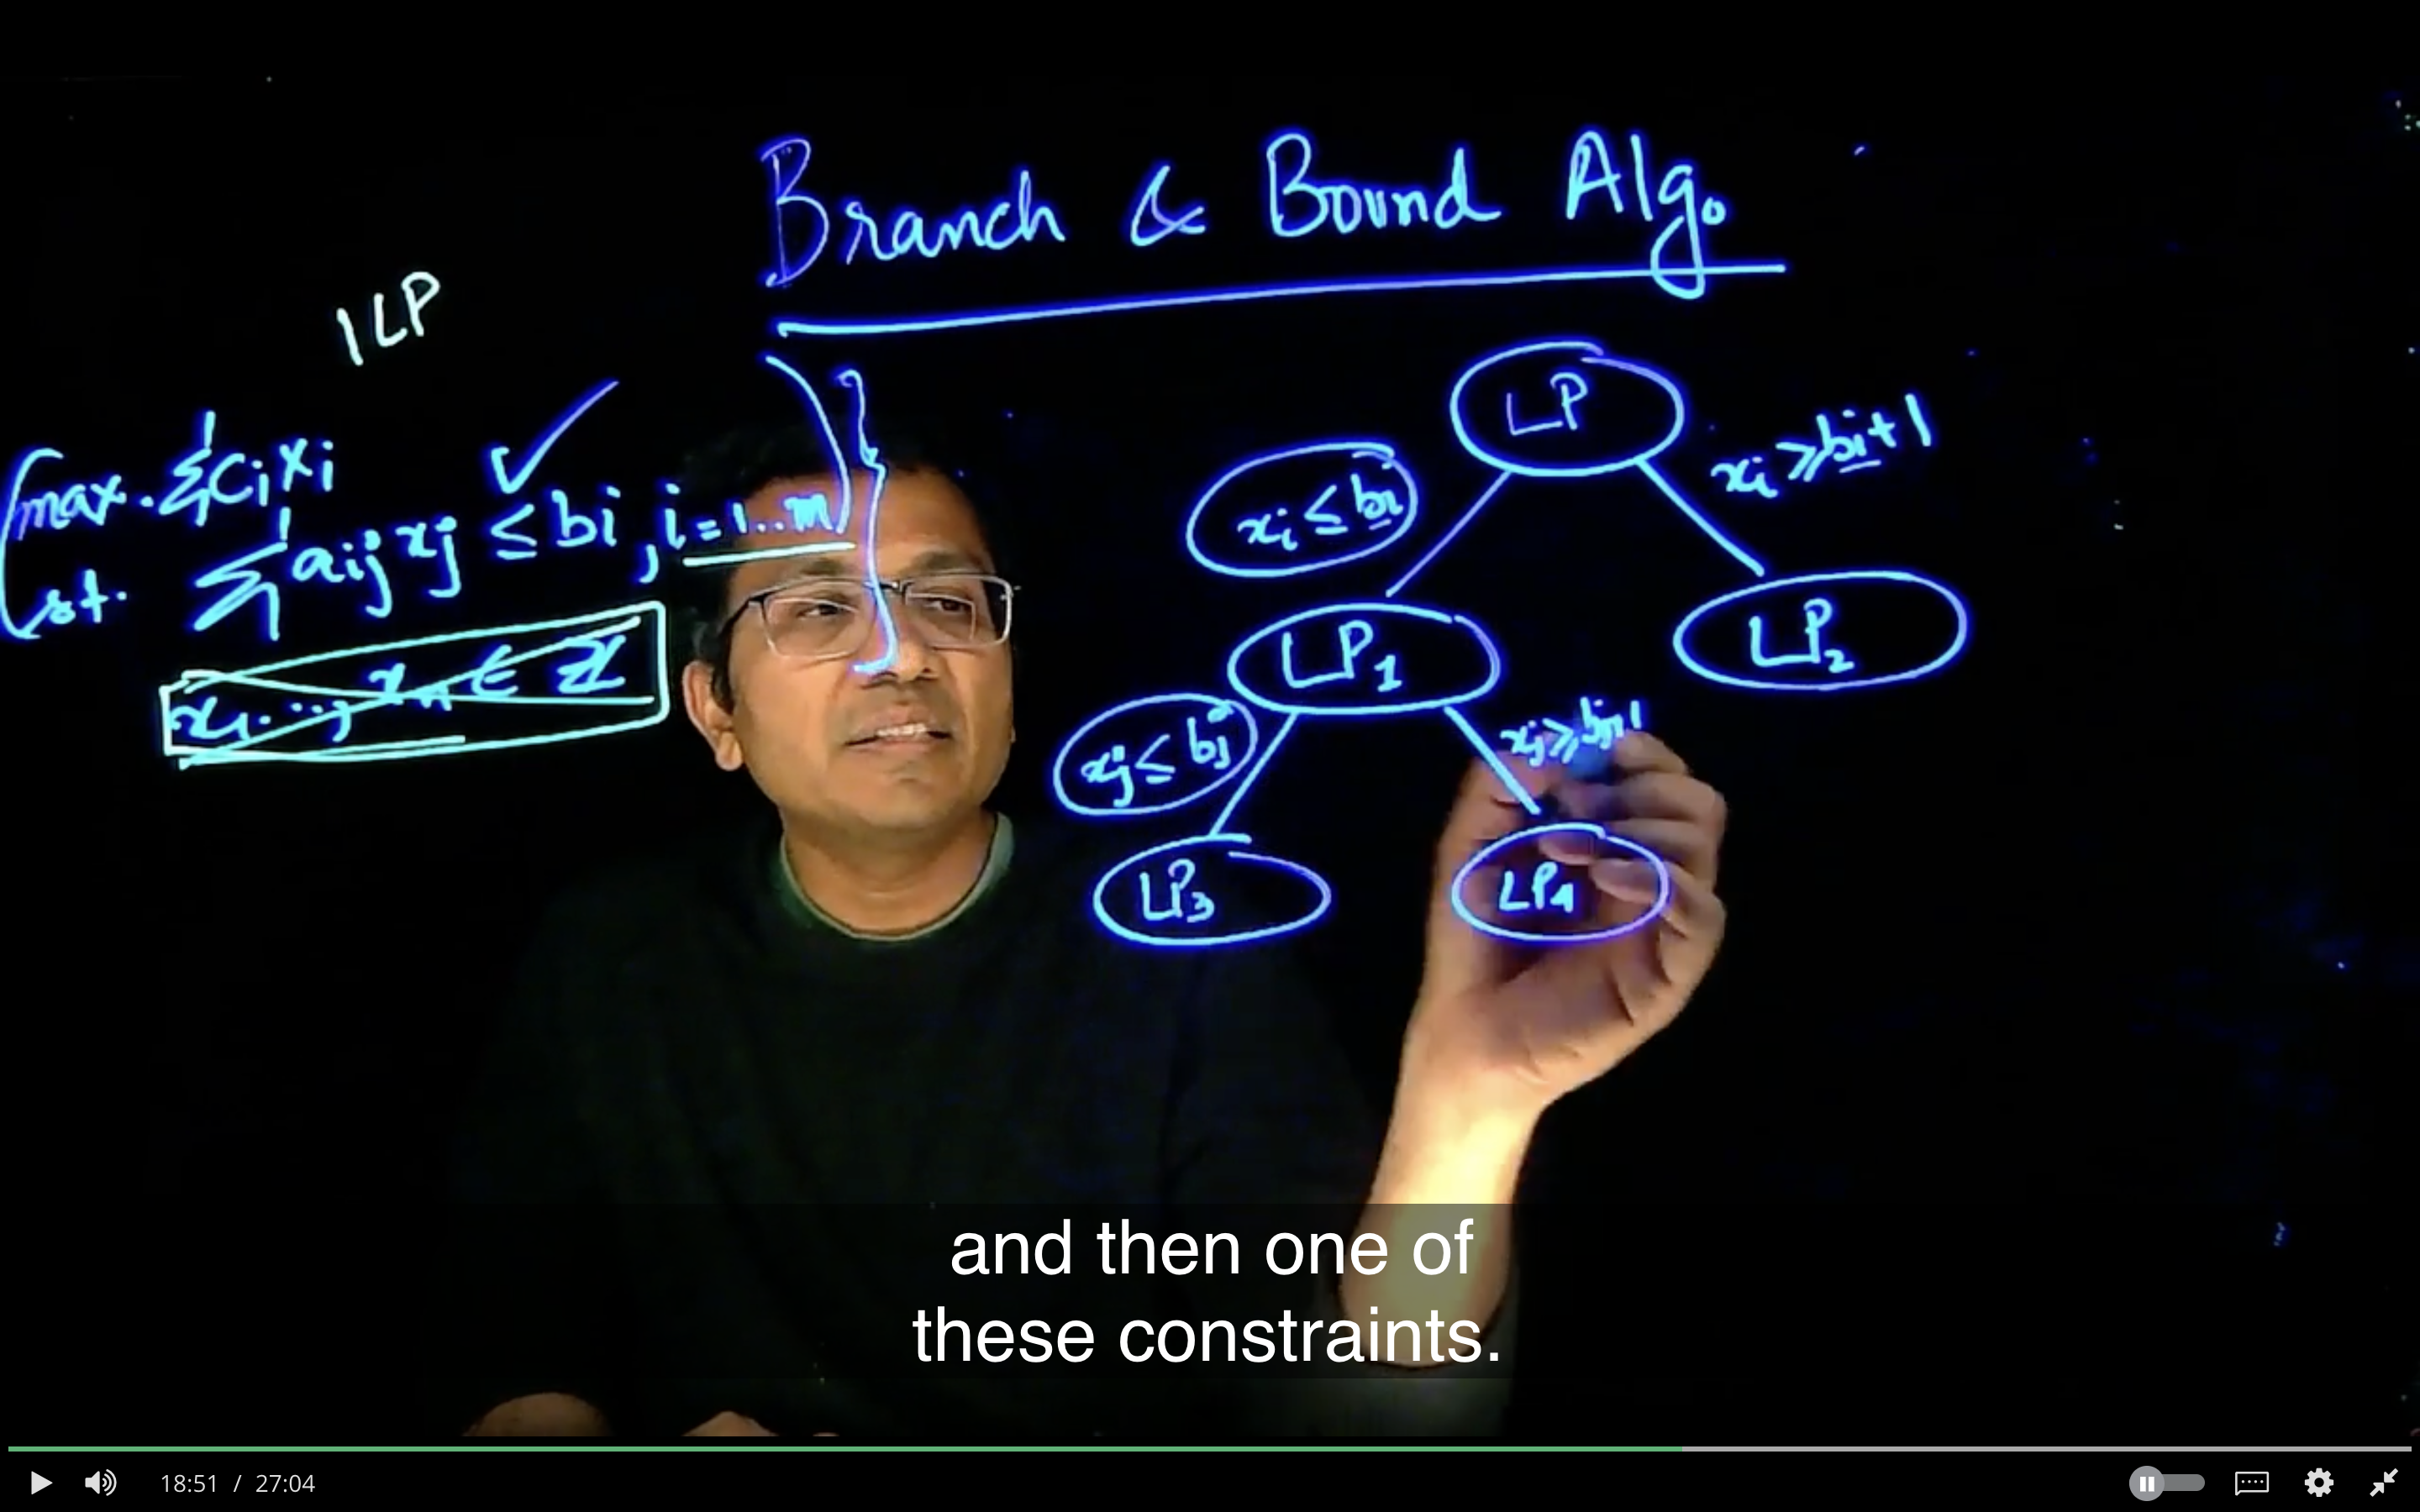 Branch & Bound Alg.
ILP
max. Σ cixi
st. Σ aij xj ≤ bi, i=1..m
x1..., xn ∈ Z
LP
xi ≤ bi
xi ≥ bi+1
LP1
LP2
xj ≤ bj
xj ≥ bj+1
LP3
LP4
and then one of
these constraints.
18:51 / 27:04